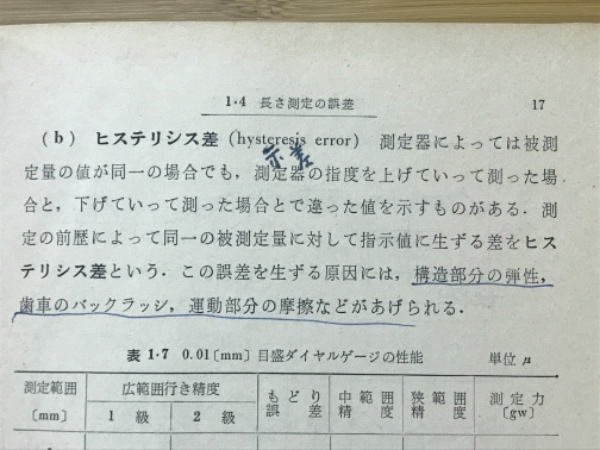 1・4 長さ測定の誤差 17
(b) ヒステリシス差 (hysteresis error) 測定器によっては被測
示差
定量の値が同一の場合でも，測定器の指度を上げていって測った場
合と，下げていって測った場合とで違った値を示すものがある．測
定の前歴によって同一の被測定量に対して指示値に生ずる差をヒス
テリシス差という．この誤差を生ずる原因には，構造部分の弾性，
歯車のバックラッシ，運動部分の摩擦などがあげられる．
表 1・7 0.01〔mm〕目盛ダイヤルゲージの性能 単位 μ
測定範囲 広範囲行き精度 もどり 中範囲 狭範囲 測定力
〔mm〕 1 級 2 級 誤差 精度 精度 〔gw〕